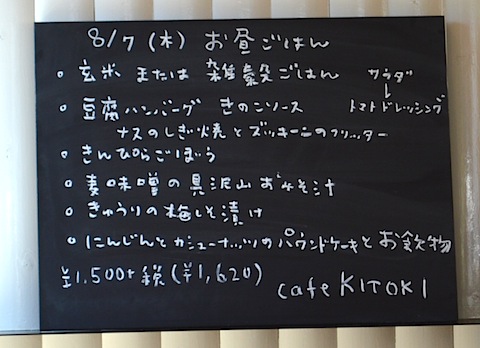 8/7 (木) お昼ごはん
○ 玄米 または 雑穀ごはん サラダ
↓
○ 豆腐ハンバーグ きのこソース トマトドレッシング
ナスのしぎ焼とズッキーニのフリッター
○ きんぴらごぼう
○ 麦味噌の具沢山おみそ汁
○ きゅうりの梅しそ漬け
○ にんじんとカシューナッツのパウンドケーキとお飲物
¥1,500+税(¥1,620)
cafe KITOKI